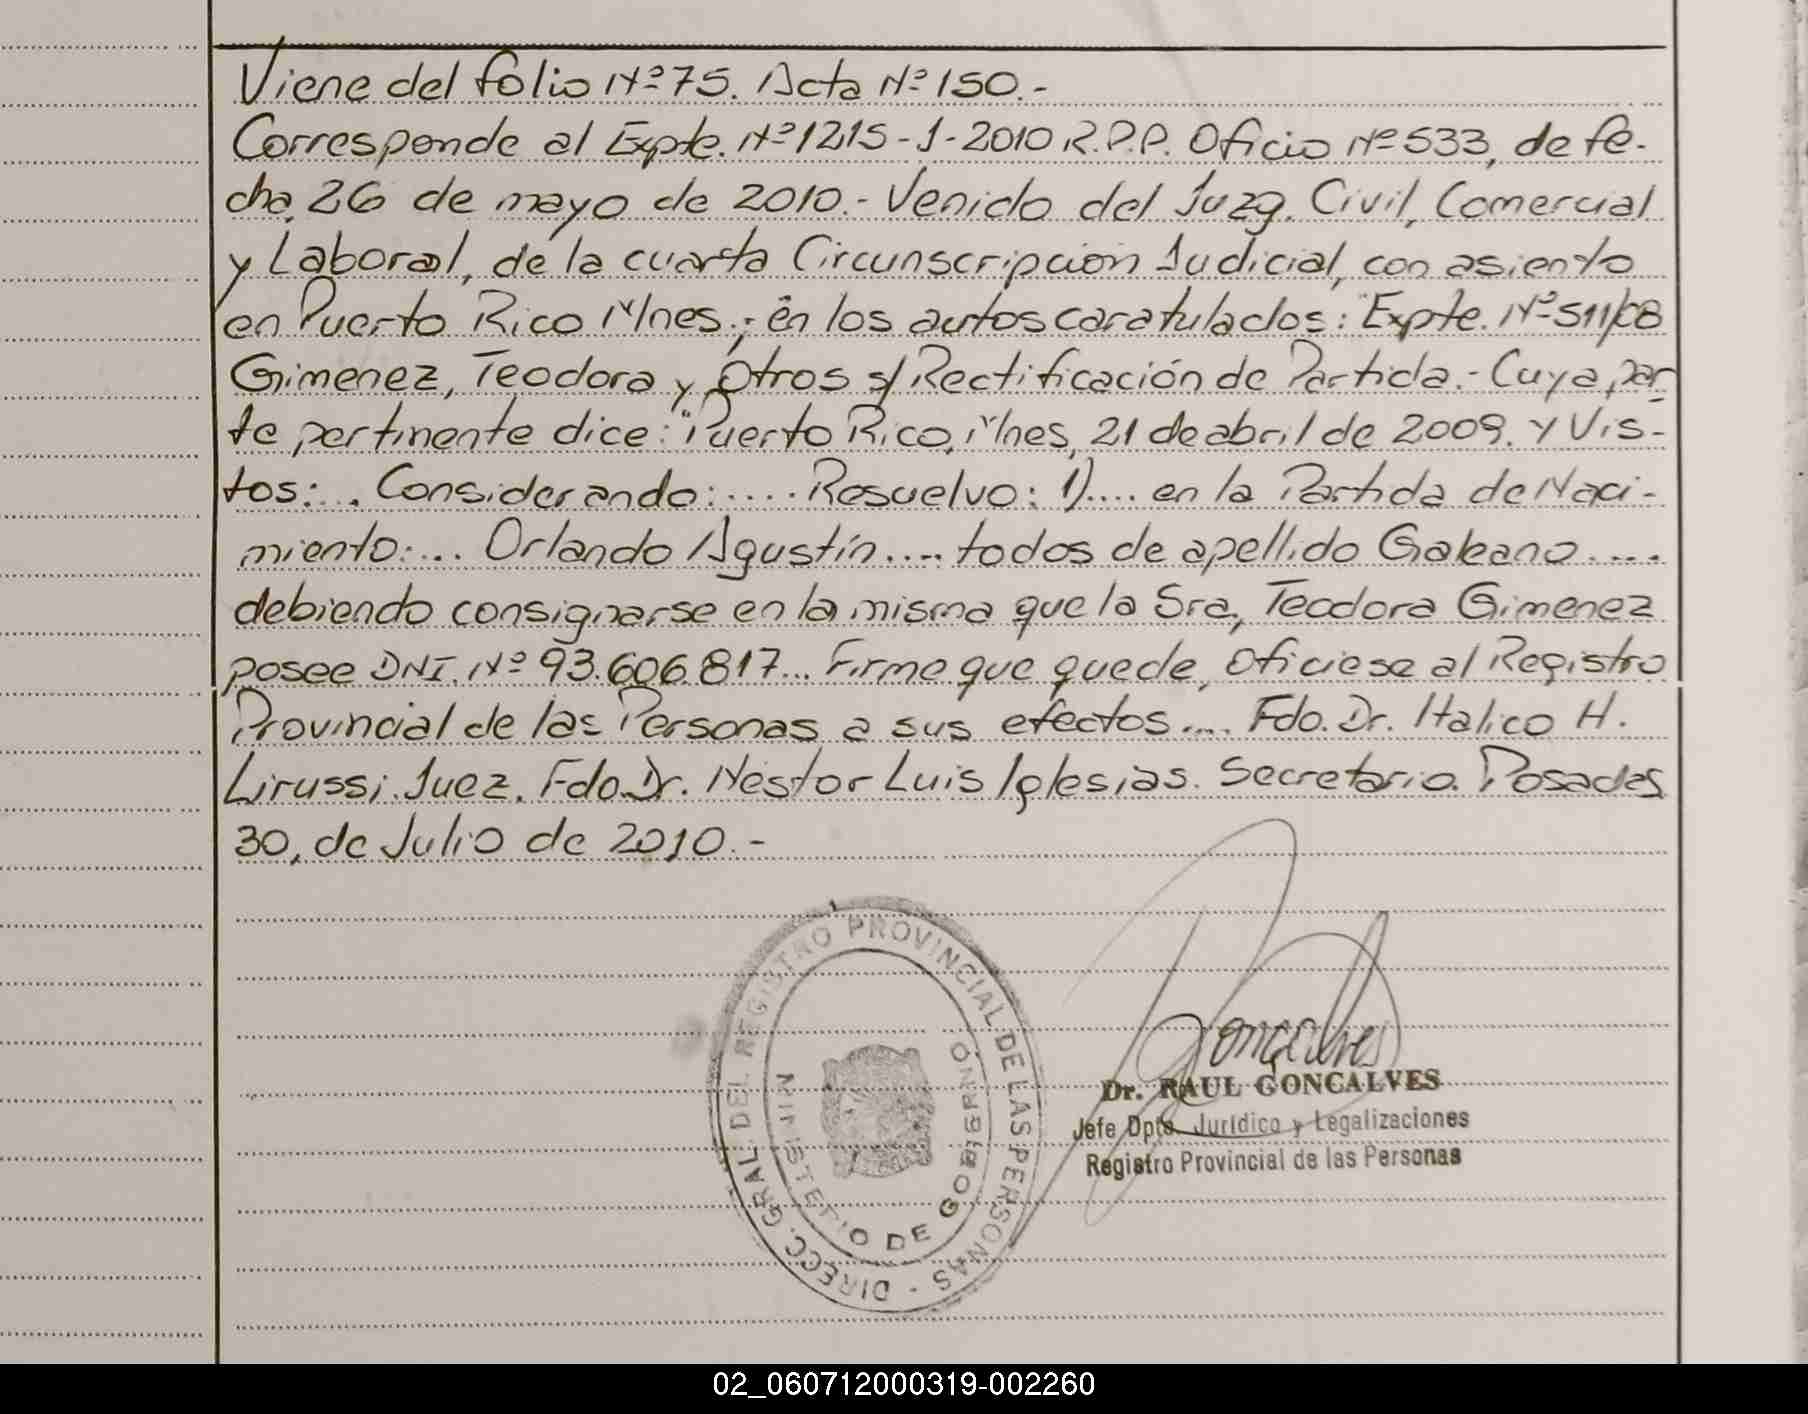 Viene del folio Nº 75. Acta Nº 150.-
Corresponde al Expte. Nº 1215-J-2010 R.P.P. Oficio Nº 533, de fe-
cha, 26 de mayo de 2010.- Venido del Juzg. Civil, Comercial
y Laboral, de la cuarta Circunscripcion Judicial, con asiento
en Puerto Rico Mnes.; en los autos caratulados: "Expte. Nº 511/08
Gimenez, Teodora y Otros s/Rectificación de Partida.- Cuya par
te pertinente dice: "Puerto Rico, Mnes, 21 de abril de 2009. y Vis-
tos:... Considerando:.... Resuelvo: 1).... en la Partida de Naci-
miento:... Orlando Agustín.... todos de apellido Galeano....
debiendo consignarse en la misma que la Sra, Teodora Gimenez
posee DNI. Nº 93.606.817... Firme que quede, oficiese al Registro
Provincial de las Personas a sus efectos.... Fdo. Dr. Italico H.
Lirussi. Juez. Fdo. Dr. Nestor Luis Iglesias. Secretario. Posadas
30, de Julio de 2010.-
DIREC. GRAL. DEL REGISTRO PROVINCIAL DE LAS PERSONAS -
MINISTERIO DE GOBIERNO
Goncalves
Dr. RAUL GONCALVES
Jefe Dpto. Jurídico y Legalizaciones
Registro Provincial de las Personas
02_060712000319-002260